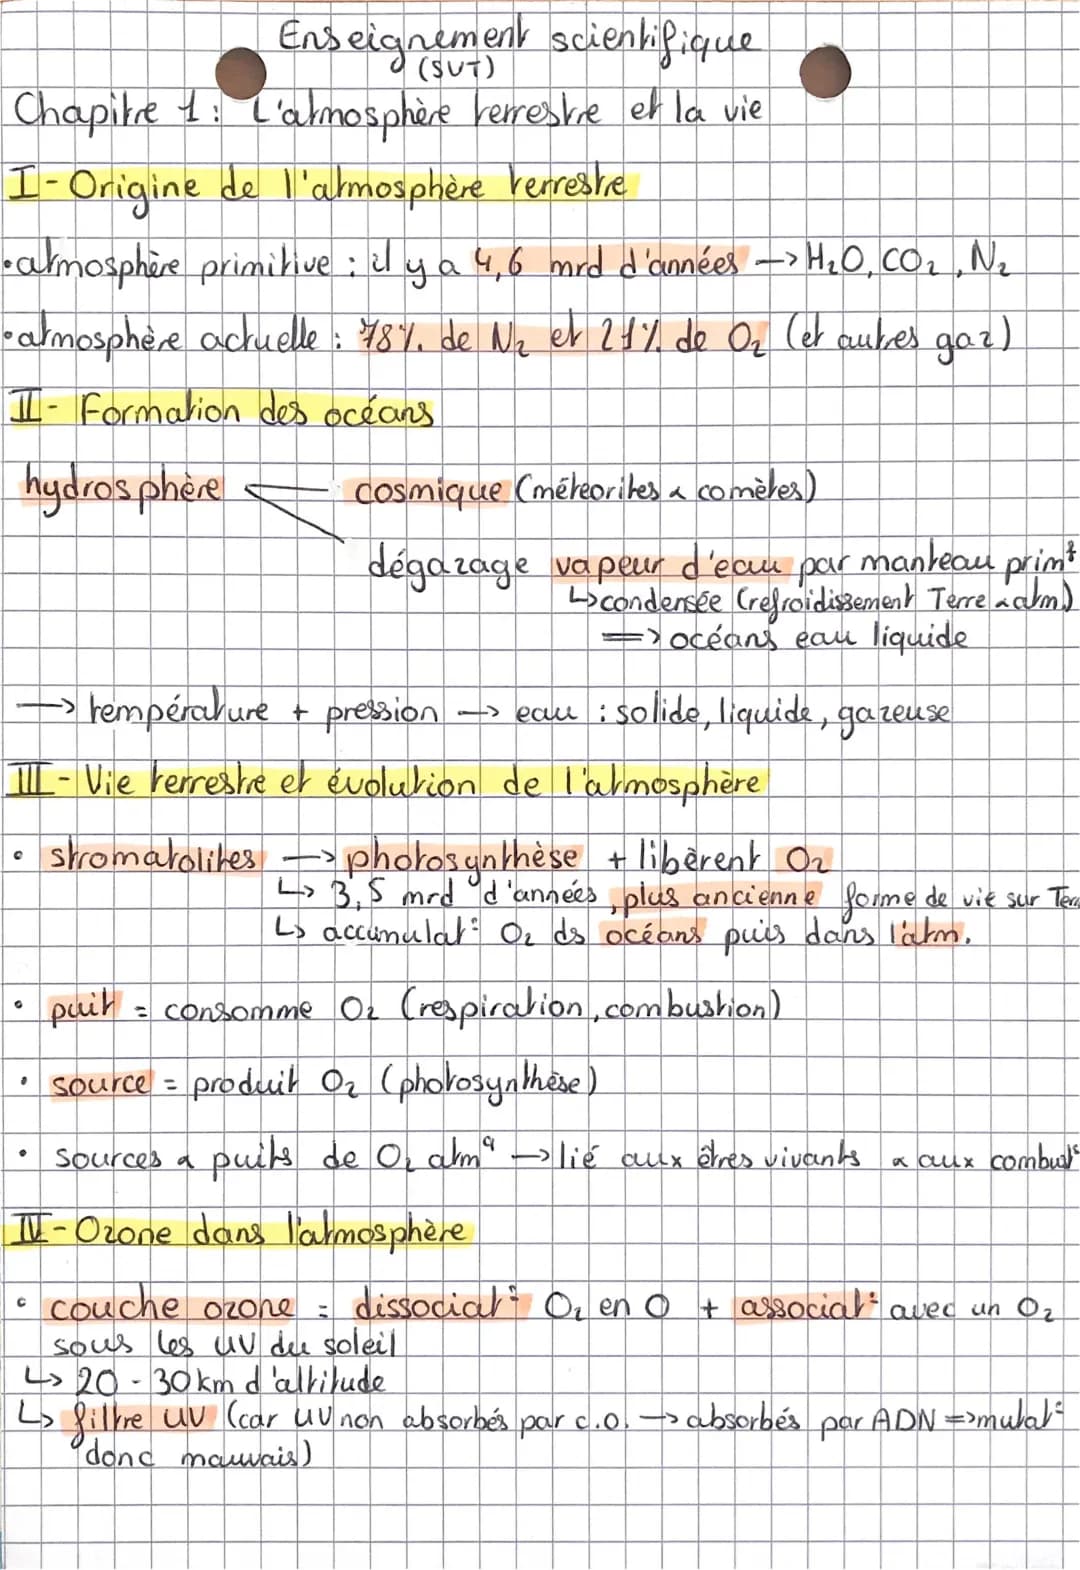 Enseignement scientifique
(SVT)
Chapitre 1 : L'atmosphère terrestre et la vie
I - Origine de l'atmosphère terrestre
•atmosphère primitive : il y a 4,6 mrd d'années → H₂O, CO₂, N₂
•atmosphère actuelle : 78% de N₂ et 21% de O₂ (et autres gaz)
II - Formation des océans
hydrosphère cosmique (météorites & comètes)
dégazage vapeur d'eau par manteau prim^t
↳ condensée (refroidissement Terre & atm)
=> océans eau liquide
→ température + pression → eau : solide, liquide, gazeuse
III - Vie terrestre et évolution de l'atmosphère
• stromatolites → photosynthèse + libèrent O₂
↳ 3,5 mrd d'années, plus ancienne forme de vie sur Terre
↳ accumulat° O₂ ds océans puis dans l'atm.
• puit = consomme O₂ (respiration, combustion)
• source = produit O₂ (photosynthèse)
• sources & puits de O₂ atm^q → lié aux êtres vivants & aux combust°
IV - Ozone dans l'atmosphère
• couche ozone = dissociat° O₂ en O + associat° avec un O₂
sous les UV du soleil
↳ 20 - 30 km d'altitude
↳ filtre UV (car UV non absorbés par c.o. → absorbés par ADN => mutat°
donc mauvais)